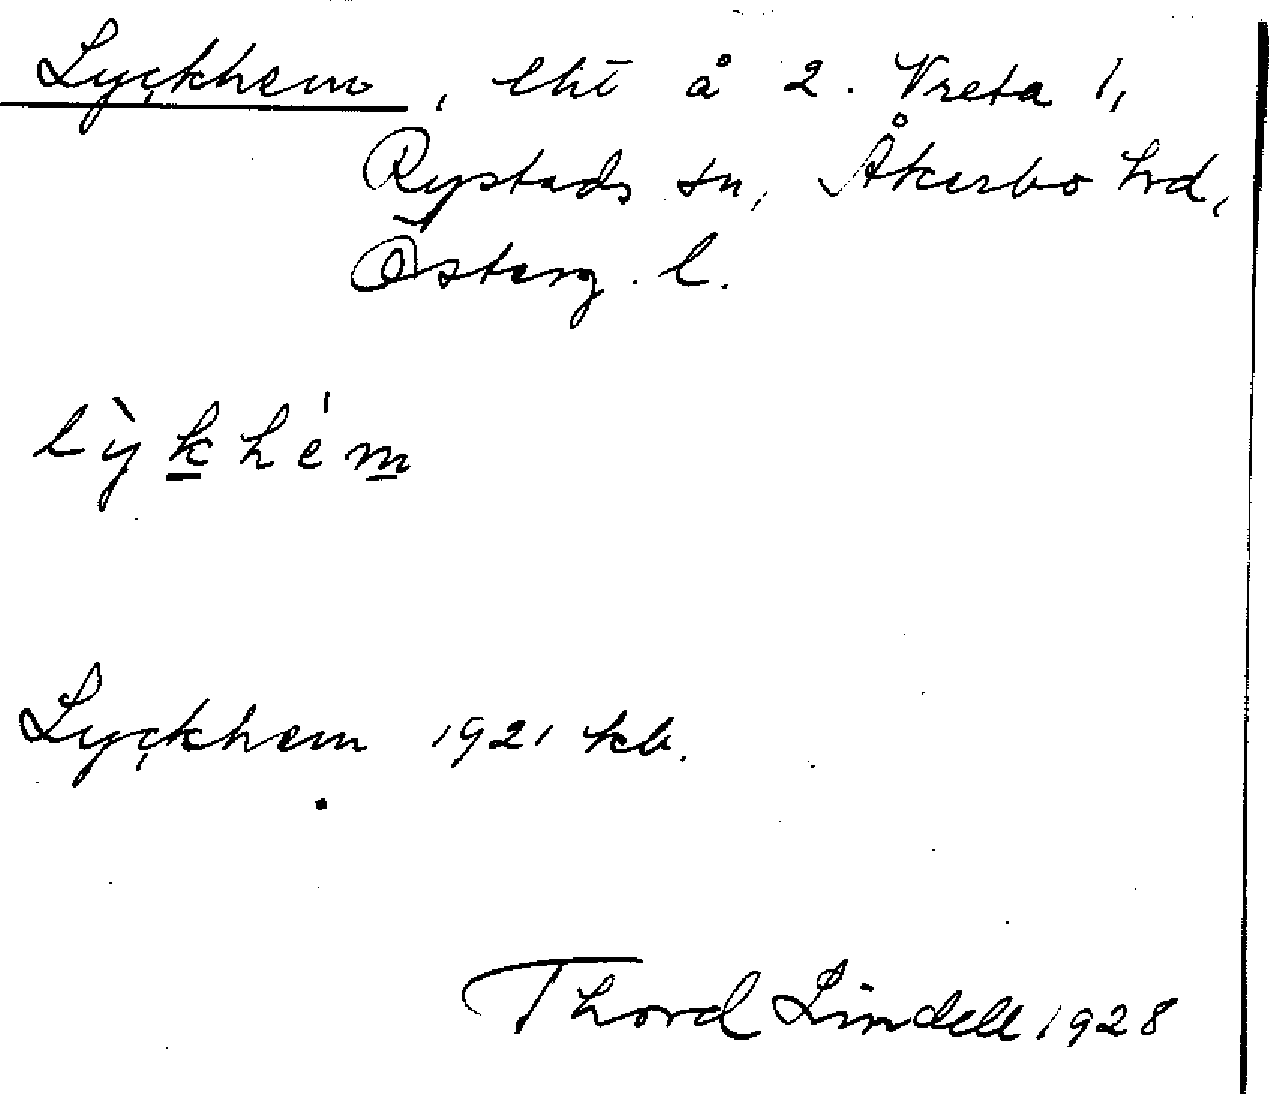 Lyckhem, lht å 2. Vreta 1,
Rystads sn, Åkerbo hd,
Österg. l.
lỳkhém
Lyckhem 1921 kb.
Thord Lindell 1928